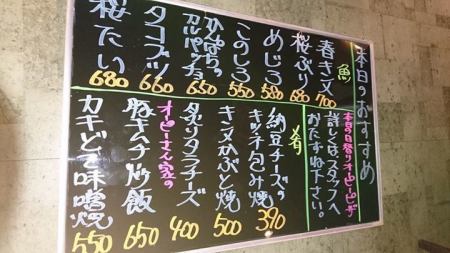 本日のおすすめ
魚
春キス 700
桜ぶり 680
めじろ 580
このしろ 550
かんぱちの
カルパッチョ 650
タコブツ 660
桜たい 680
本日の日替りオーピーピザ
詳しくはスタッフへ
おたずね下さい。
肴
納豆チーズの
キッチ包み焼 390
キスかぶと焼 500
炙りタラチーズ 400
オピーさん家の
豚キムチ炒飯 650
カキどて味噌焼 550